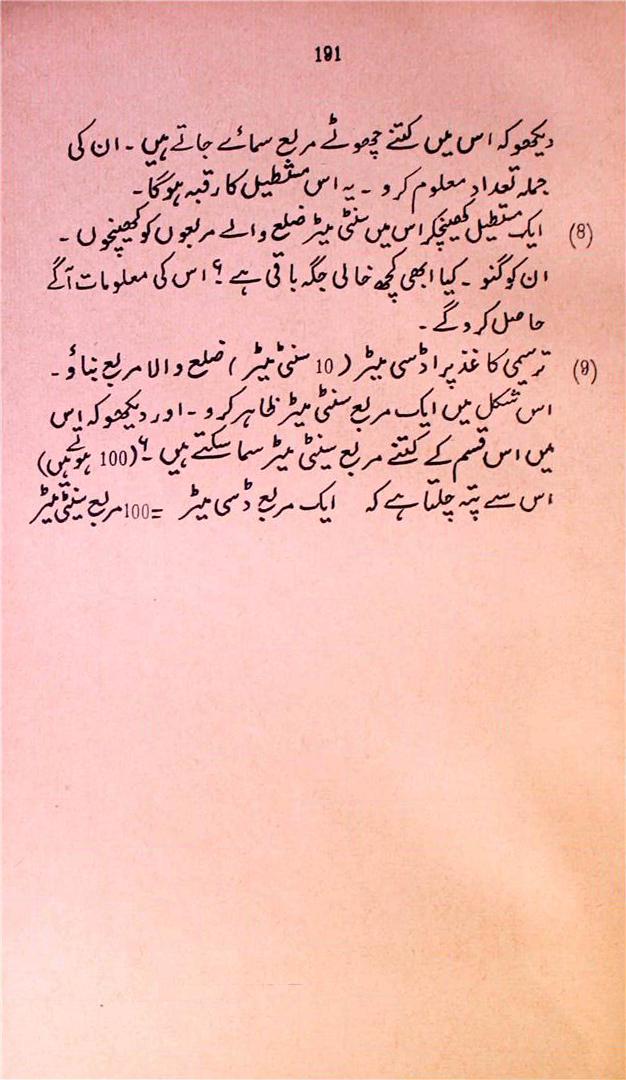 191
دیکھو کہ اس میں کتنے چھوٹے مربع سمائے جاتے ہیں ۔ ان کی
جملہ تعداد معلوم کرو ۔ یہ اس مستطیل کا رقبہ ہوگا ۔
(8) ایک مستطیل کھینچکر اس میں سنٹی میٹر ضلع والے مربعوں کو کھینچوں ۔
ان کو گنو ۔ کیا ابھی کچھ خالی جگہ باقی ہے ؟ اس کی معلومات آگے
حاصل کروگے ۔
(9) ترسیمی کاغذ پر ا ڈسی میٹر (10 سنٹی میٹر) ضلع والا مربع بناؤ ۔
اس شکل میں ایک مربع سنٹی میٹر ظاہر کرو ۔ اور دیکھو کہ اس
میں اس قسم کے کتنے مربع سینٹی میٹر سما سکتے ہیں ۔؟ (100 ہوتے ہیں)
اس سے پتہ چلتا ہے کہ ایک مربع ڈسی میٹر =100 مربع سینٹی میٹر